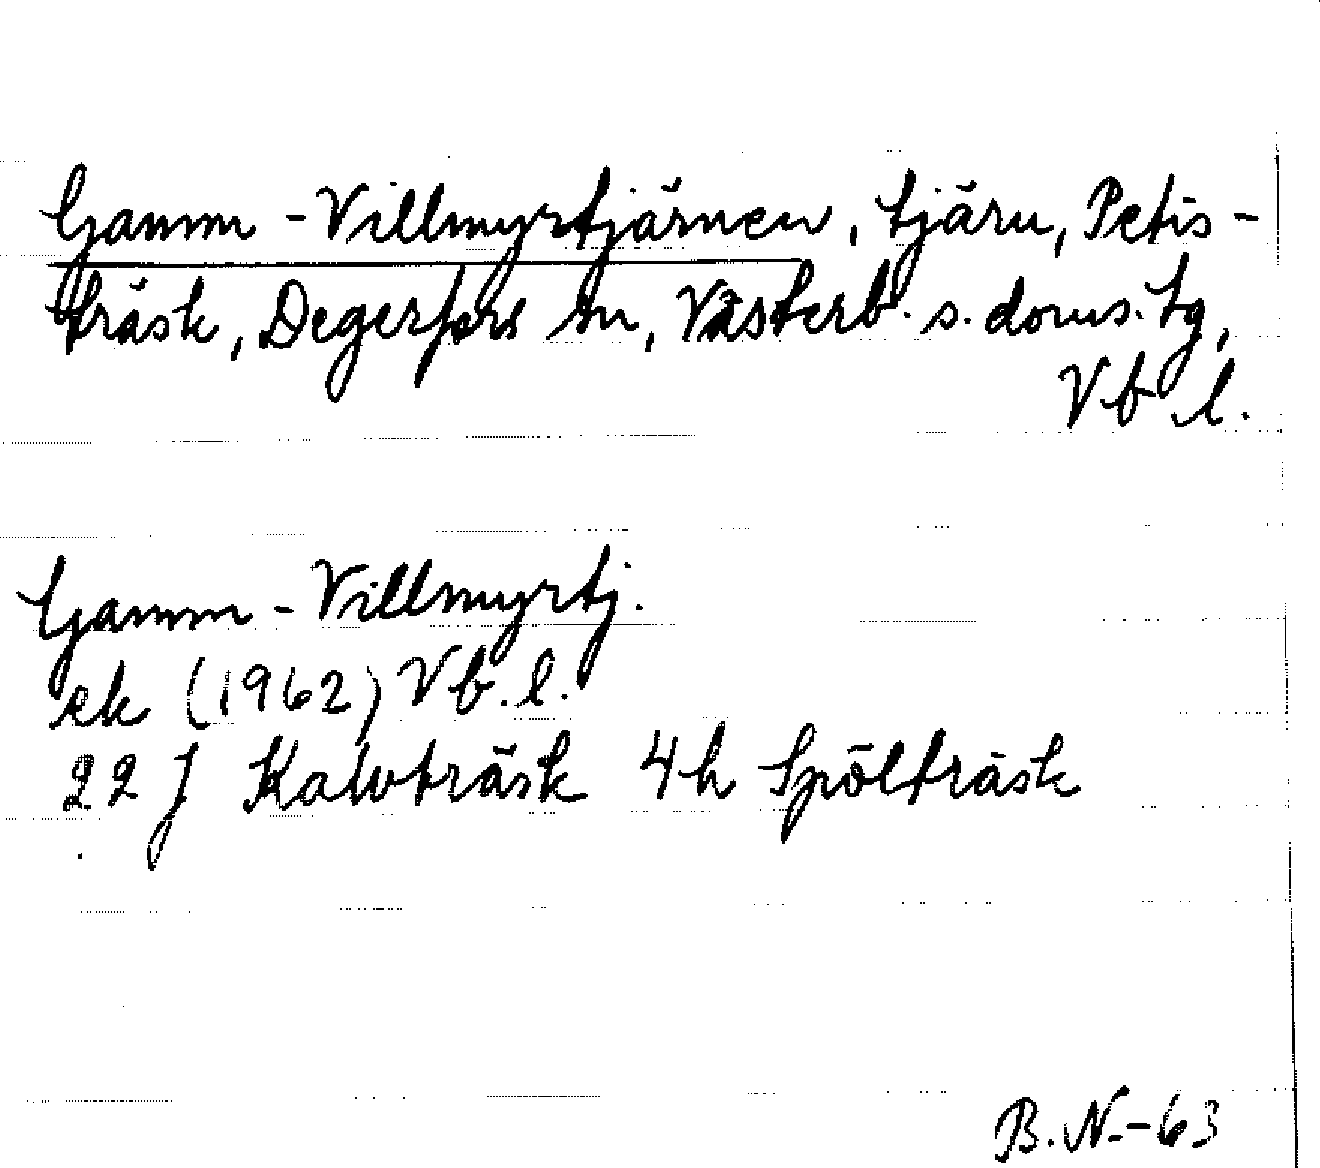 Gamm-Villmyrtjärnen, tjärn, Petis-
träsk, Degerfors sn, Västerb. s. doms. tg,
Vb l.
Gamm-Villmyrtj.
ek (1962) Vb. l.
22 J Kalvträsk 4h Spölträsk
B.N.-63